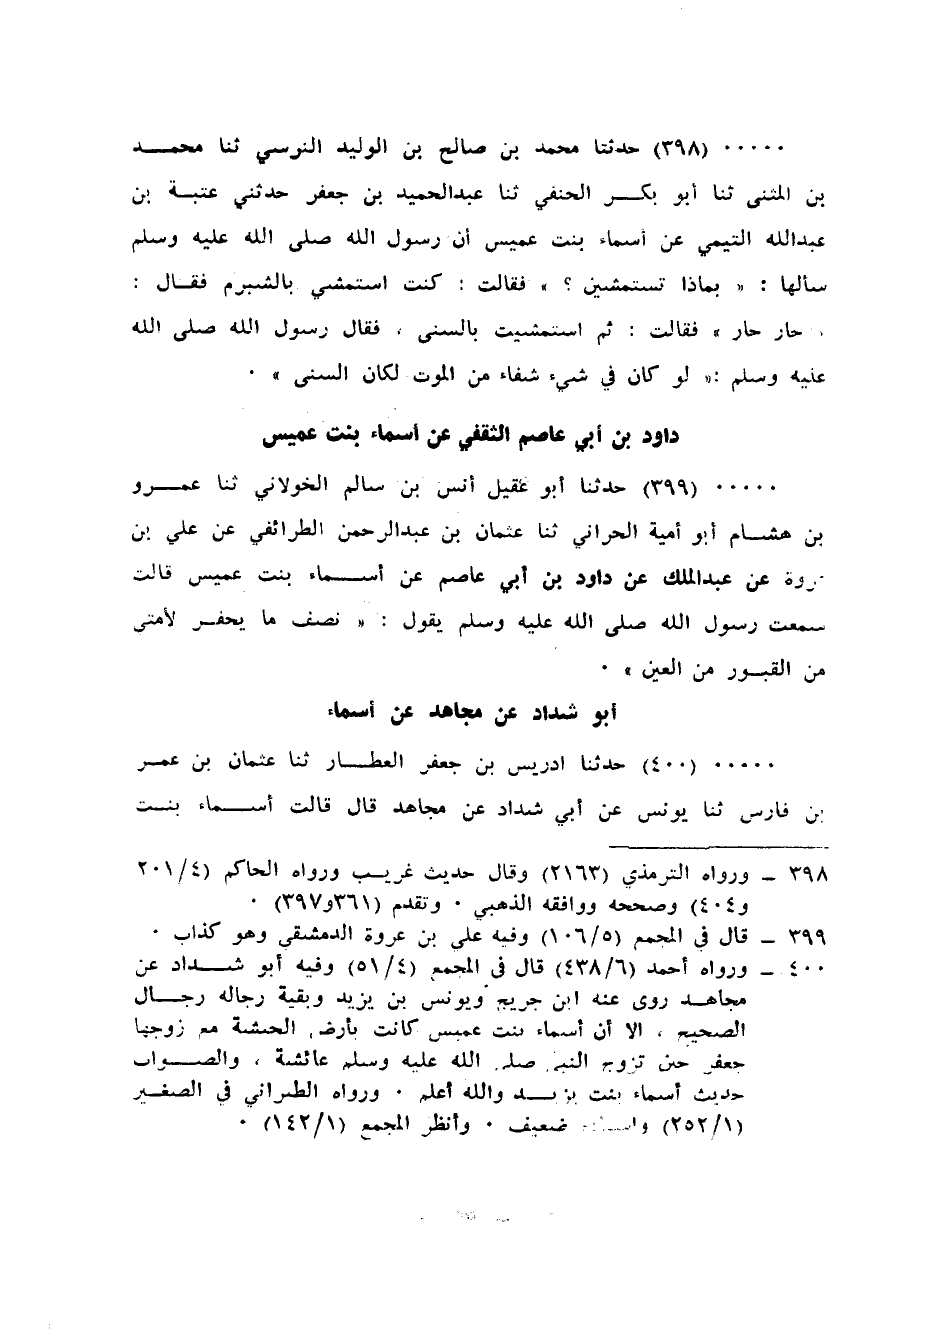 ٠٠٠٠٠ (٣٩٨) حدثنا محمد بن صالح بن الوليد النرسي ثنا محمد
بن المثنى ثنا أبو بكر الحنفي ثنا عبدالحميد بن جعفر حدثني عتبة بن
عبدالله التيمي عن أسماء بنت عميس أن رسول الله صلى الله عليه وسلم
سألها : « بماذا تستمشين ؟ » فقالت : كنت استمشي بالشبرم فقال :
« حار حار » فقالت : ثم استمشيت بالسنى ، فقال رسول الله صلى الله
عليه وسلم :« لو كان في شيء شفاء من الموت لكان السنى » ٠
داود بن أبي عاصم الثقفي عن أسماء بنت عميس
٠٠٠٠٠ (٣٩٩) حدثنا أبو عقيل أنس بن سالم الخولاني ثنا عمرو
بن هشام أبو أمية الحراني ثنا عثمان بن عبدالرحمن الطرائفي عن علي بن
عروة عن عبدالملك عن داود بن أبي عاصم عن أسماء بنت عميس قالت
سمعت رسول الله صلى الله عليه وسلم يقول : « نصف ما يحفر لأمتى
من القبور من العين » ٠
أبو شداد عن مجاهد عن أسماء
٠٠٠٠٠ (٤٠٠) حدثنا ادريس بن جعفر العطار ثنا عثمان بن عمر
بن فارس ثنا يونس عن أبي شداد عن مجاهد قال قالت أسماء بنت
٣٩٨ ــ ورواه الترمذي (٢١٦٣) وقال حديث غريب ورواه الحاكم (٢٠١/٤
و٤٠٤) وصححه ووافقه الذهبي ٠ وتقدم (٣٦١و٣٩٧) ٠
٣٩٩ ــ قال في المجمع (١٠٦/٥) وفيه علي بن عروة الدمشقي وهو كذاب ٠
٤٠٠ ــ ورواه أحمد (٤٣٨/٦) قال في المجمع (٥١/٤) وفيه أبو شداد عن
مجاهد روى عنه ابن جريج ويونس بن يزيد وبقية رجاله رجال
الصحيح ، الا أن أسماء بنت عميس كانت بأرض الحبشة مع زوجها
جعفر حين تزوج النبي صلى الله عليه وسلم عائشة ، والصواب
حديث أسماء بنت يزيد والله أعلم ٠ ورواه الطبراني في الصغير
(٢٥٢/١) واسناده ضعيف ٠ وأنظر المجمع (١٤٢/١) ٠